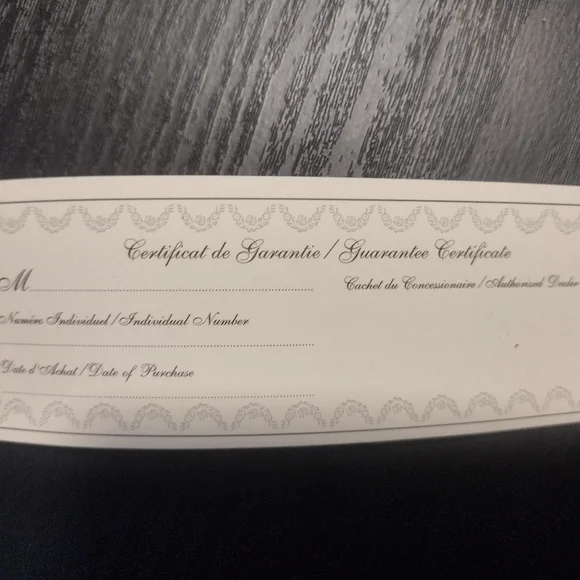 Certificat de Garantie / Guarantee Certificate
M
Cachet du Concessionaire / Authorised Dealer
Numéro Individuel / Individual Number
Date d'Achat / Date of Purchase